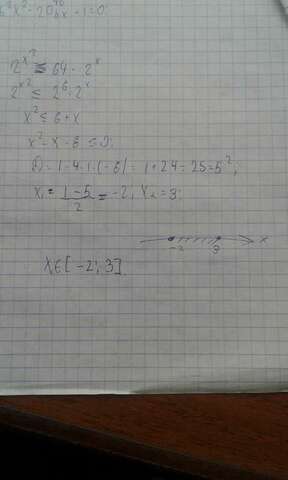 2^{x^2} ≤ 64 · 2^x
2^{x^2} ≤ 2^6 · 2^x
x^2 ≤ 6 + x
x^2 - x - 6 ≤ 0;
D = 1 - 4 · 1 · (-6) = 1 + 24 = 25 = 5^2;
x_1 = \frac{1 - 5}{2} = -2; x_2 = 3;
-2 3 x
x ∈ [-2; 3]